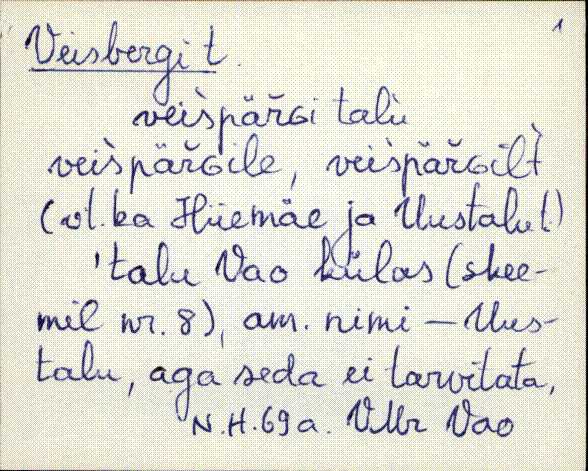 1
Veisbergi t.
veìspäř̆ɢi talù
veìspäřɢile, veìspäřɢilt̀
(vt. ka Hiiemäe ja Uustalu t.)
'talu Vao külas (skee-
mil nr. 8), am. nimi – Uus-
talu, aga seda ei tarvitata,
N.H. 69 a. VMr Vao